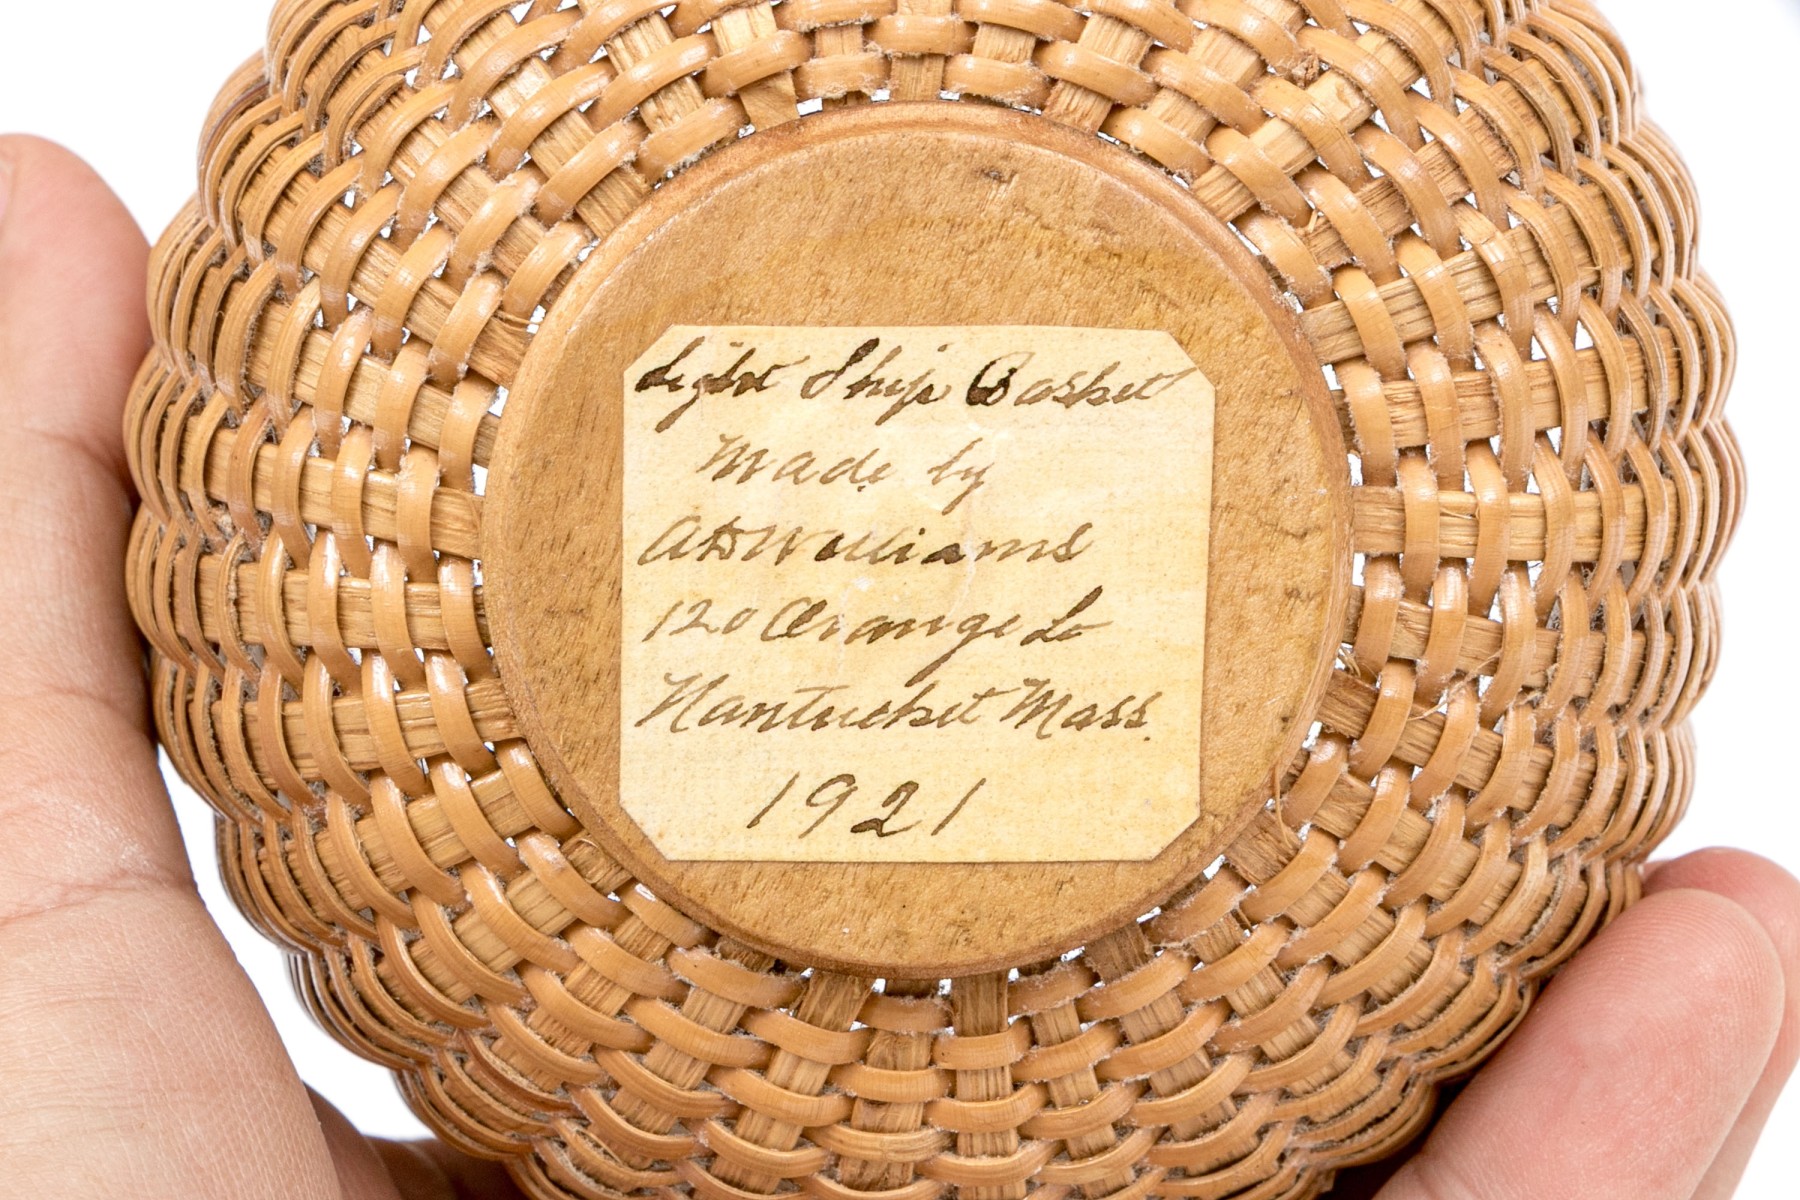 Light Ship Basket
Made by
A D Williams
120 Orange St
Nantucket Mass.
1921